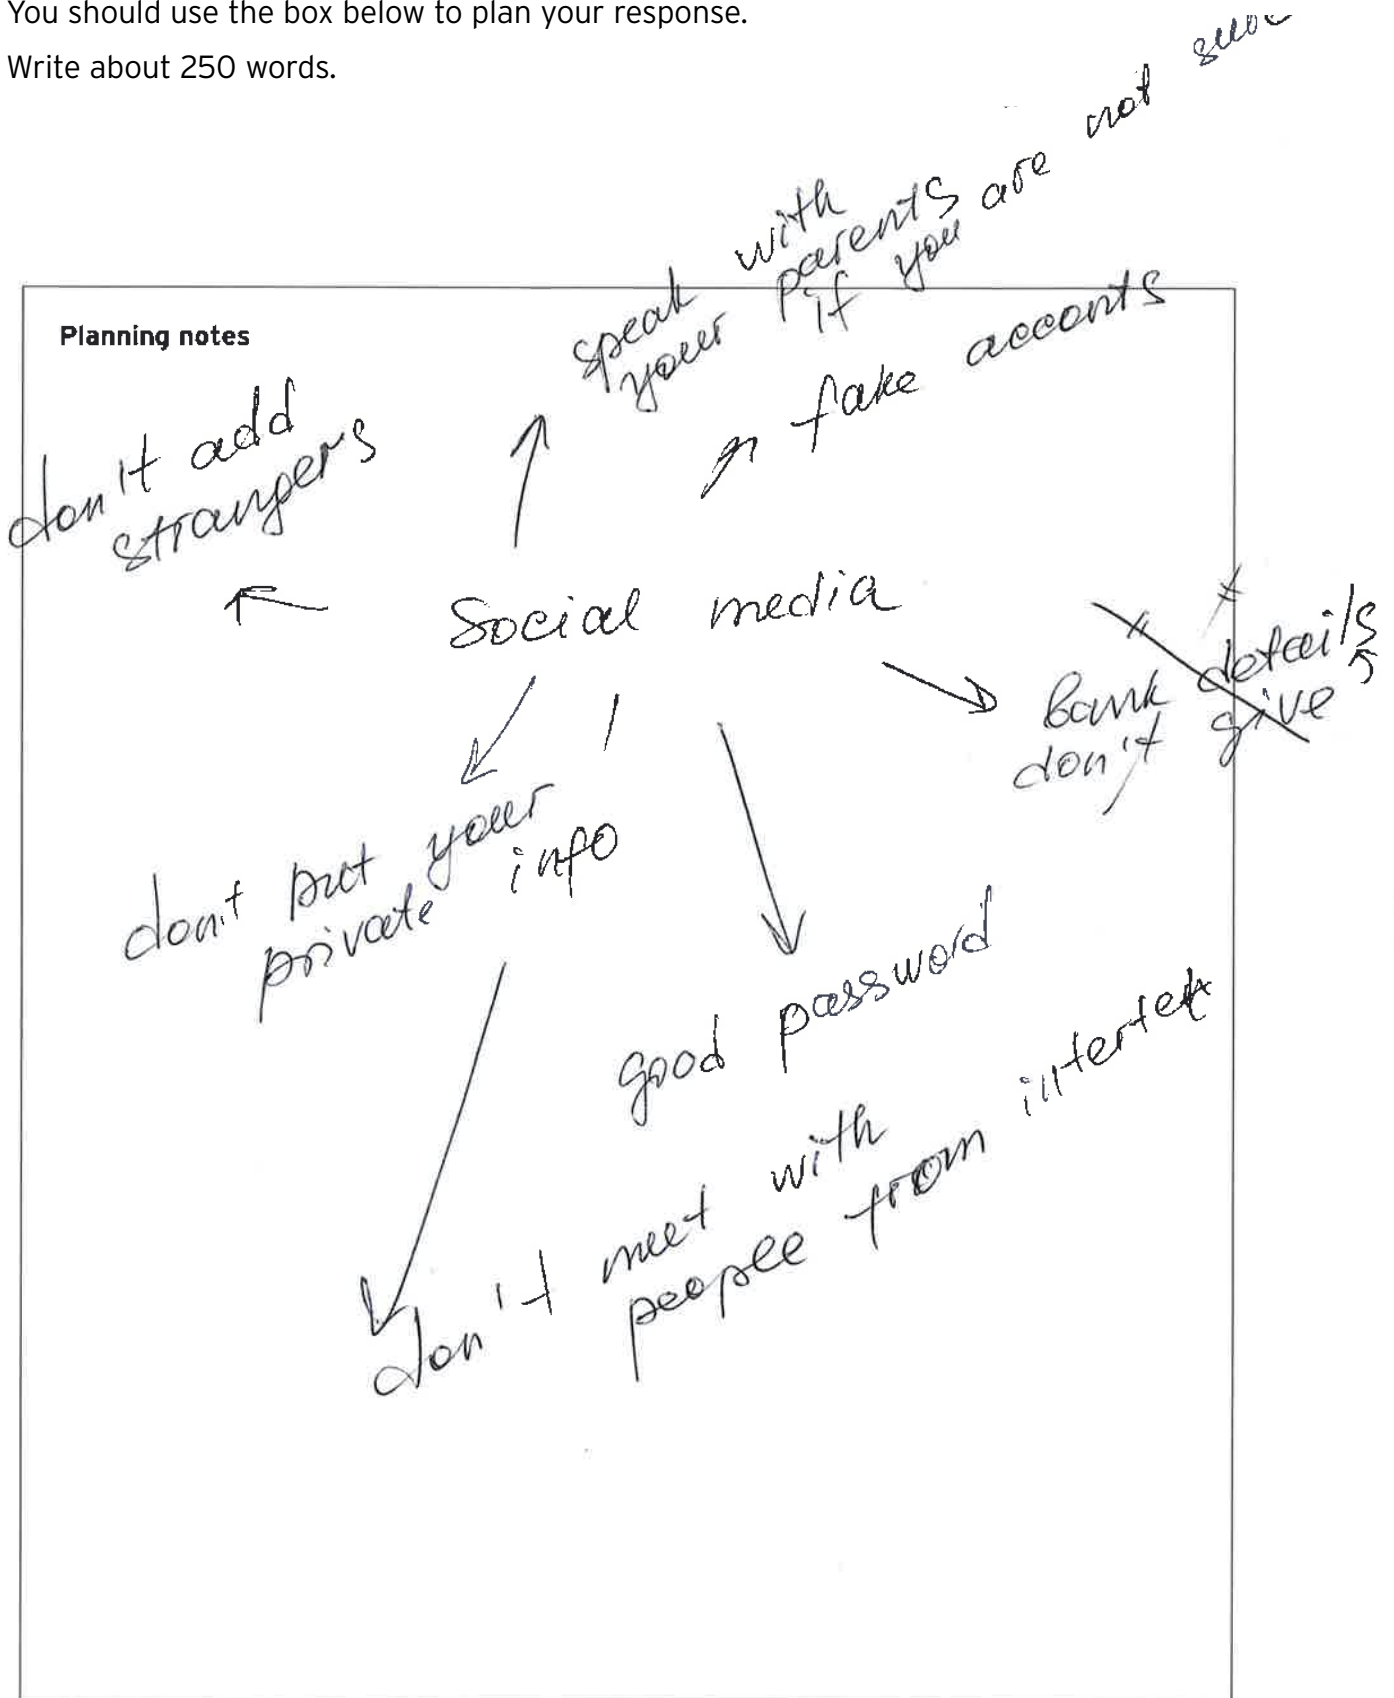 You should use the box below to plan your response.
Write about 250 words.
Planning notes
speak with
your parents
if you are not sure
fake acconts
don't add
strangers
Social media
bank details
don't give
don't put your
private info
good password
don't meet with
people from